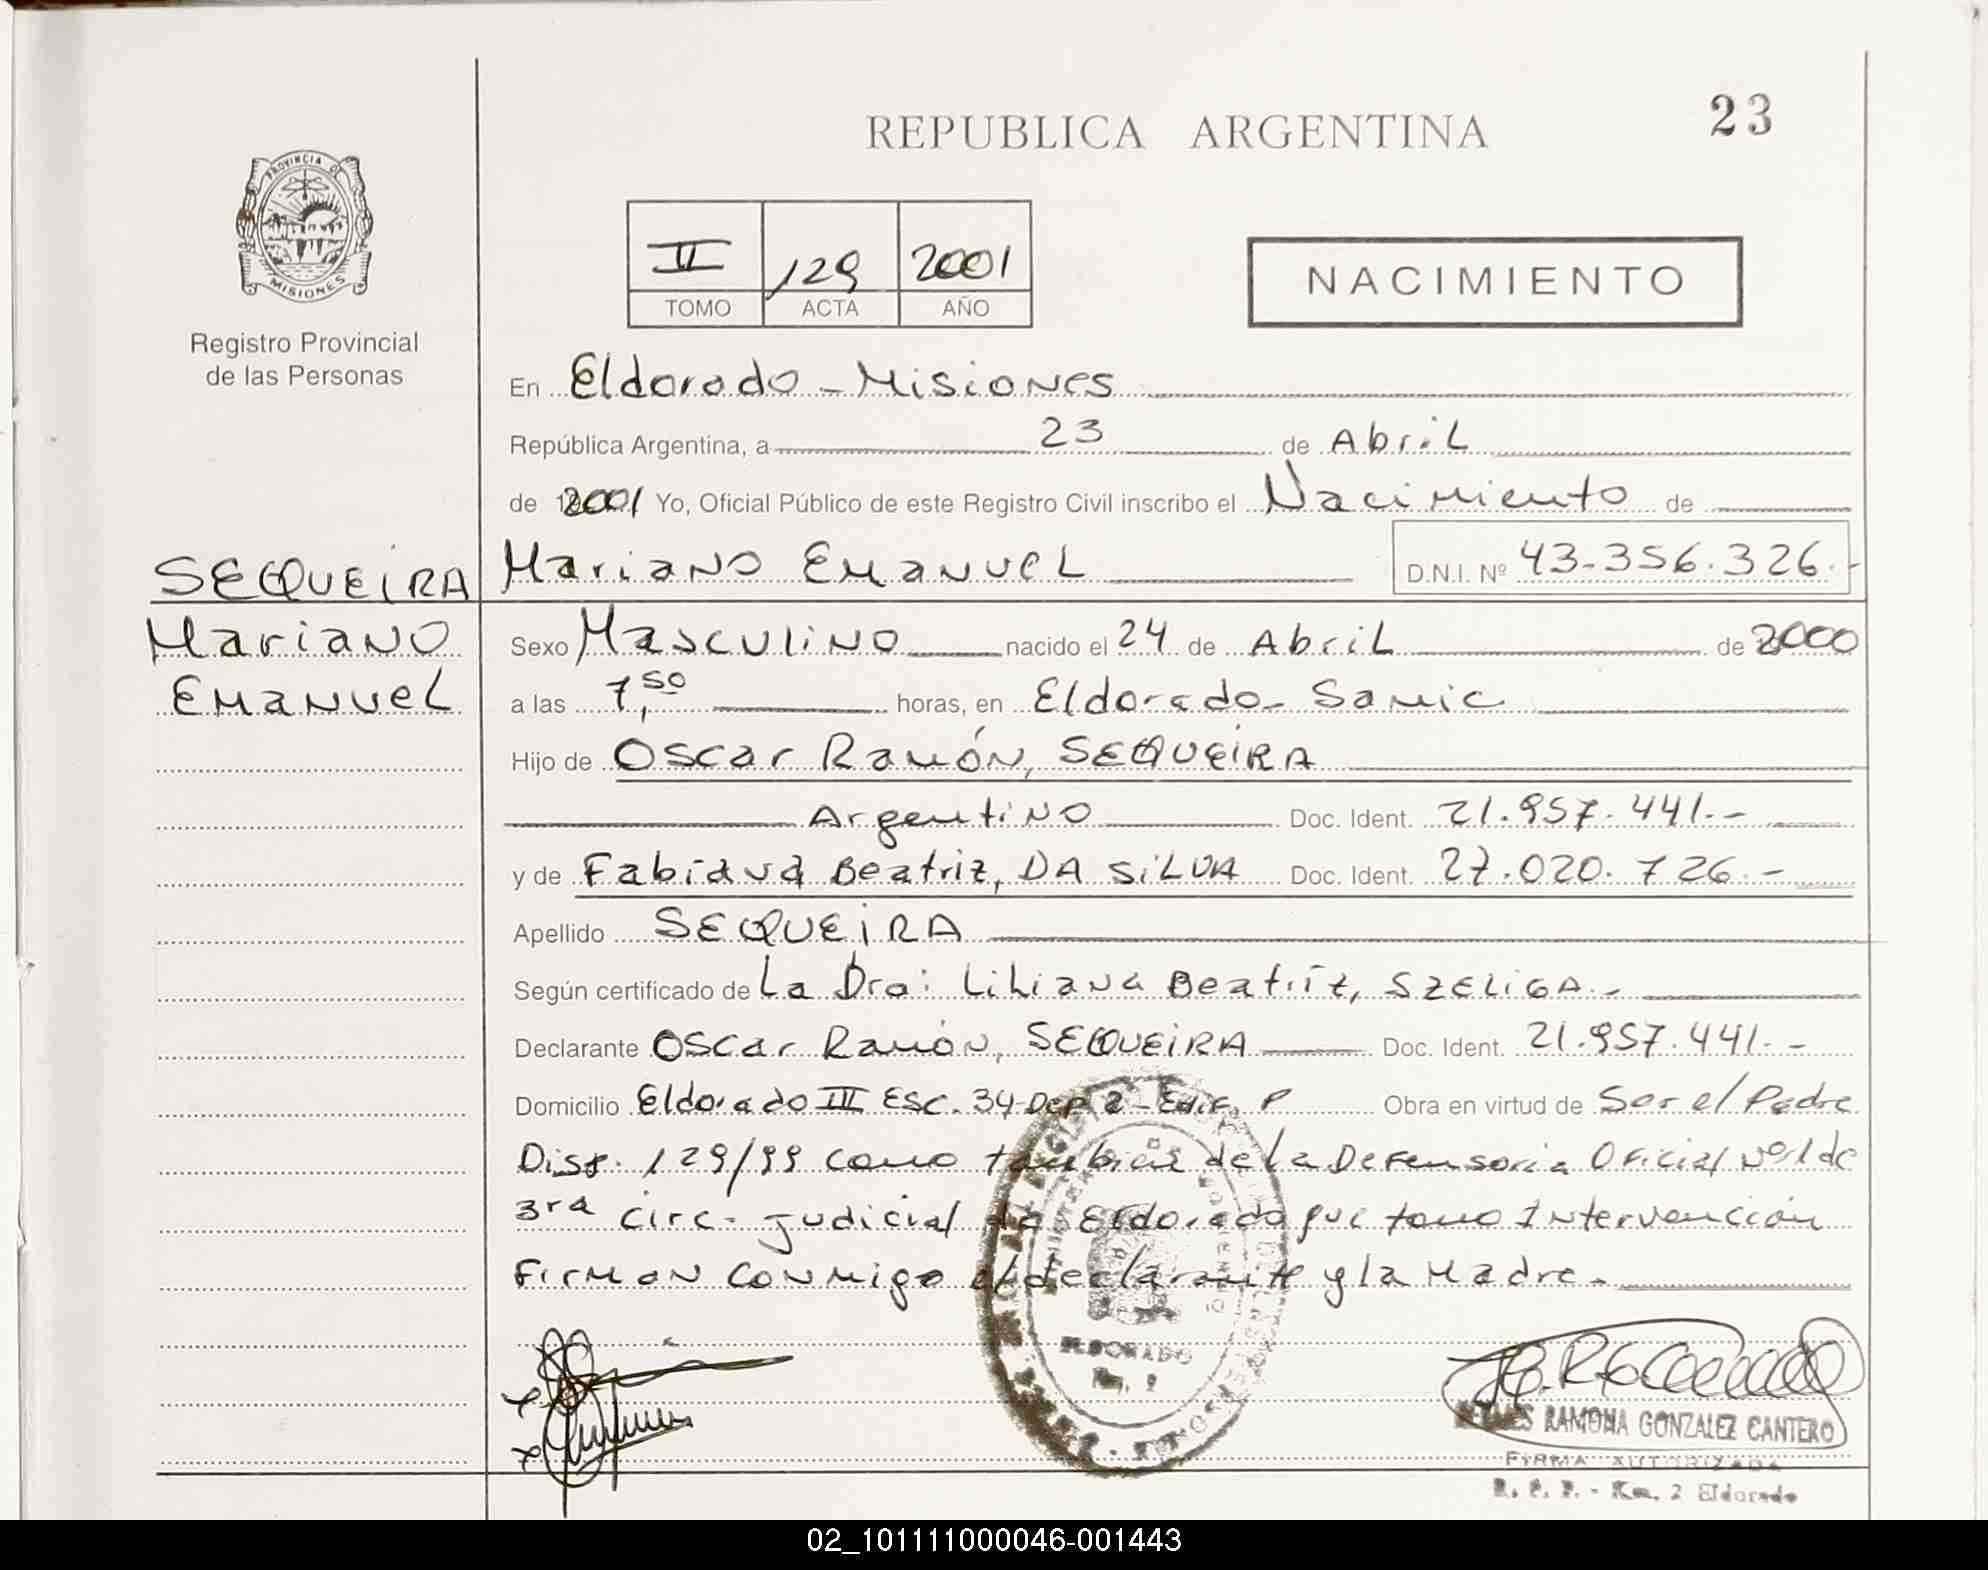 REPUBLICA ARGENTINA
23
PROVINCIA DE
MISIONES
Registro Provincial
de las Personas
II 129 2001
TOMO ACTA AÑO
NACIMIENTO
En Eldorado - Misiones
República Argentina, a 23 de Abril
de 2001 Yo, Oficial Público de este Registro Civil inscribo el Nacimiento de
SEQUEIRA Mariano Emanuel D.N.I. Nº 43.356.326.-
Mariano Sexo Masculino nacido el 24 de Abril de 2000
Emanuel a las 7,50 horas, en Eldorado - Samic
Hijo de Oscar Ramón, SEQUEIRA
Argentino Doc. Ident. 21.957.441.-
y de Fabiana Beatriz, DA SiLVA Doc. Ident. 27.020.726.-
Apellido SEQUEIRA
Según certificado de La Dra: Liliana Beatriz, SZELIGA.-
Declarante Oscar Ramón, SEQUEIRA Doc. Ident. 21.957.441.-
Domicilio Eldorado III Esc. 34 Dep 2 - Edif. P Obra en virtud de Ser el Padre
Disp. 129/99 como tambien de la Defensoria Oficial Nº1 de
3ra circ. judicial de Eldorado que tomo Intervención
Firman conmigo el declarante y la Madre.-
ELDORADO
RAMONA GONZALEZ CANTERO
FIRMA AUTORIZADA
R. P. P. - Km. 2 Eldorado
02_101111000046-001443